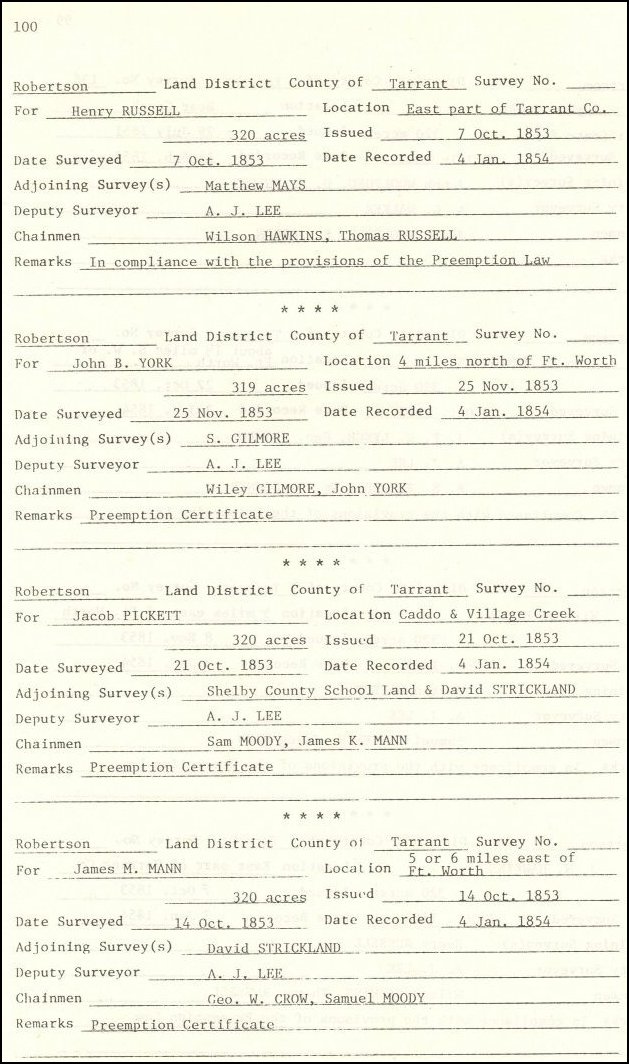 100
Robertson Land District County of Tarrant Survey No.
For Henry RUSSELL Location East part of Tarrant Co.
320 acres Issued 7 Oct. 1853
Date Surveyed 7 Oct. 1853 Date Recorded 4 Jan. 1854
Adjoining Survey(s) Matthew MAYS
Deputy Surveyor A. J. LEE
Chainmen Wilson HAWKINS, Thomas RUSSELL
Remarks In compliance with the provisions of the Preemption Law
* * * *
Robertson Land District County of Tarrant Survey No.
For John B. YORK Location 4 miles north of Ft. Worth
319 acres Issued 25 Nov. 1853
Date Surveyed 25 Nov. 1853 Date Recorded 4 Jan. 1854
Adjoining Survey(s) S. GILMORE
Deputy Surveyor A. J. LEE
Chainmen Wiley GILMORE, John YORK
Remarks Preemption Certificate
* * * *
Robertson Land District County of Tarrant Survey No.
For Jacob PICKETT Location Caddo & Village Creek
320 acres Issued 21 Oct. 1853
Date Surveyed 21 Oct. 1853 Date Recorded 4 Jan. 1854
Adjoining Survey(s) Shelby County School Land & David STRICKLAND
Deputy Surveyor A. J. LEE
Chainmen Sam MOODY, James K. MANN
Remarks Preemption Certificate
* * * *
Robertson Land District County of Tarrant Survey No.
5 or 6 miles east of
For James M. MANN Location Ft. Worth
320 acres Issued 14 Oct. 1853
Date Surveyed 14 Oct. 1853 Date Recorded 4 Jan. 1854
Adjoining Survey(s) David STRICKLAND
Deputy Surveyor A. J. LEE
Chainmen Geo. W. CROW, Samuel MOODY
Remarks Preemption Certificate